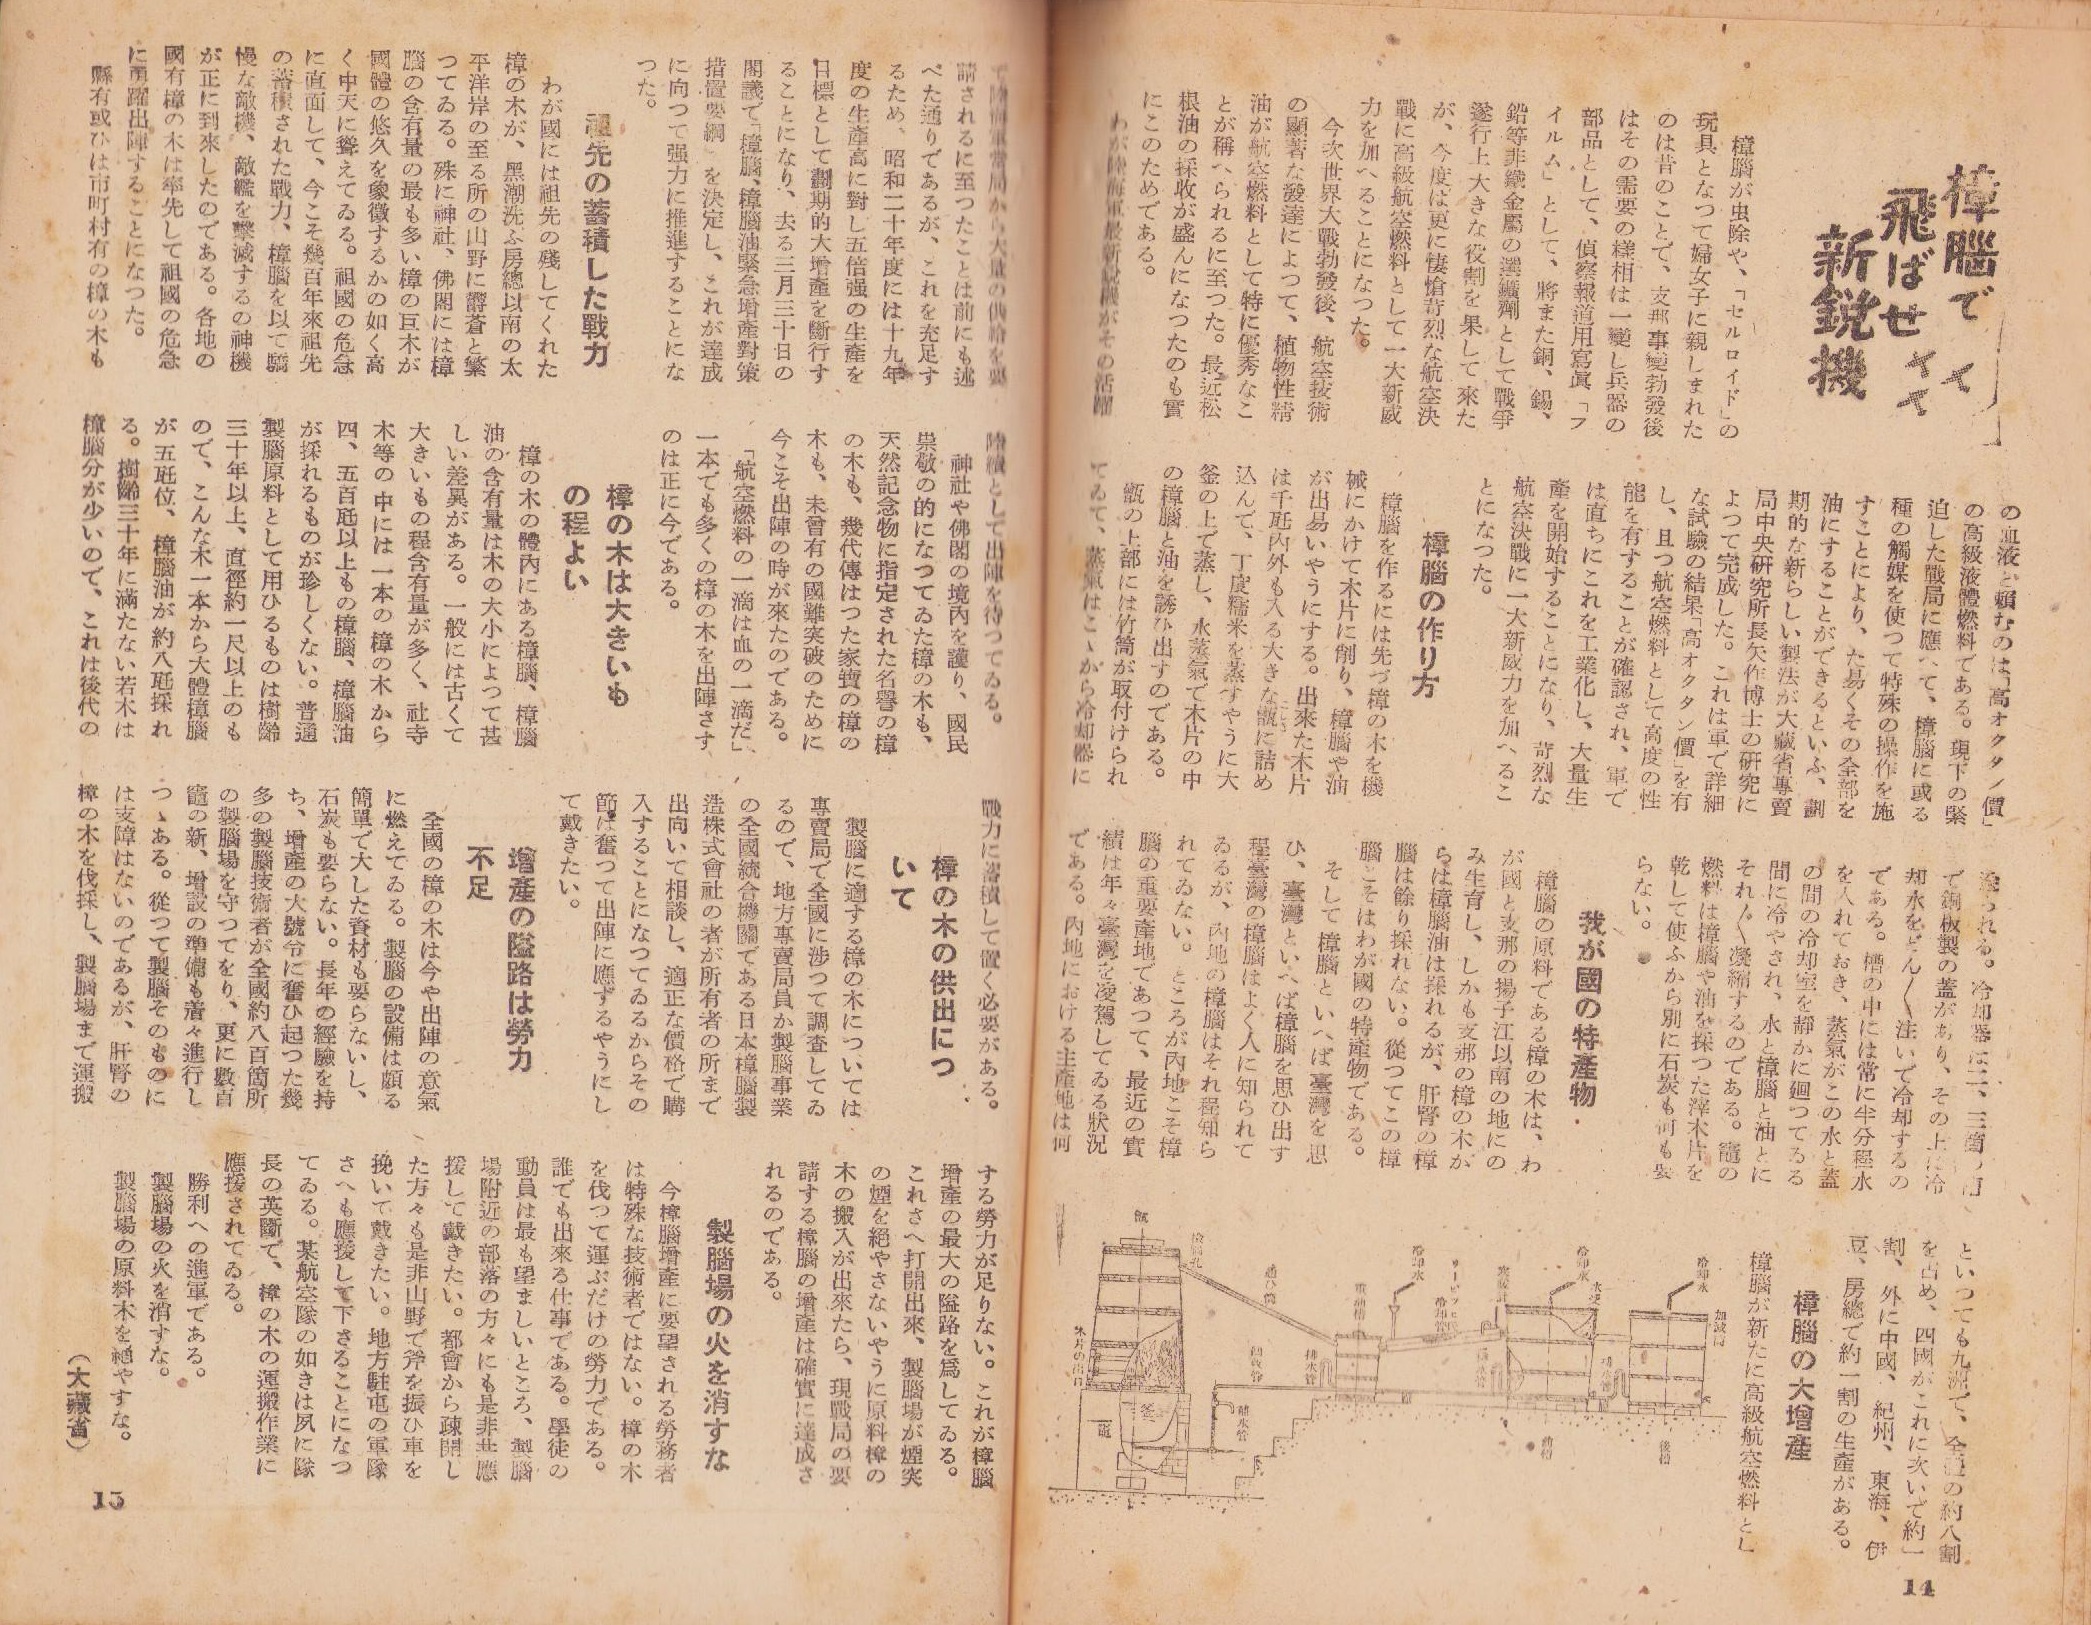 樟腦で
飛ばせ
新鋭機
樟腦が虫除や、「セルロイド」の
玩具となつて婦女子に親しまれた
のは昔のことで、支那事變勃發後
はその需要の樣相は一變し兵器の
部品として、偵察報道用寫眞「フ
イルム」として、將また銅、錫、
鉛等非鐵金屬の選鑛劑として戰爭
遂行上大きな役割を果して來た
が、今度は更に悽愴苛烈な航空決
戰に高級航空燃料として一大新威
力を加へることになつた。
今次世界大戰勃發後、航空技術
の顯著な發達によつて、植物性精
油が航空燃料として特に優秀なこ
とが稱へられるに至つた。最近松
根油の採收が盛んになつたのも實
にこのためである。
わが陸海軍最新鋭機がその活躍
の血液と賴むのは「高オクタン價」
の高級液體燃料である。現下の緊
迫した戰局に應へて、樟腦に或る
種の觸媒を使つて特殊の操作を施
すことにより、た易くその全部を
油にすることができるといふ、劃
期的な新らしい製法が大藏省專賣
局中央研究所長矢作博士の研究に
よつて完成した。これは軍で詳細
な試驗の結果「高オクタン價」を有
し、且つ航空燃料として高度の性
能を有することが確認され、軍で
は直ちにこれを工業化し、大量生
產を開始することになり、苛烈な
航空決戰に一大新威力を加へるこ
とになつた。
樟腦の作り方
樟腦を作るには先づ樟の木を機
械にかけて木片に削り、樟腦や油
が出易いやうにする。出來た木片
は千瓩內外も入る大きな甑に詰め
込んで、丁度糯米を蒸すやうに大
釜の上で蒸し、水蒸氣で木片の中
の樟腦と油を誘ひ出すのである。
甑の上部には竹筒が取付けられ
てゐて、蒸氣はこゝから冷却器に
導られる。冷却器は二、三箇の
で銅板製の蓋があり、その上に冷
却水をどん／＼注いで冷却するの
である。槽の中には常に半分程水
を入れておき、蒸氣がこの水と蓋
の間の冷却室を靜かに廻つてゐる
間に冷やされ、水と樟腦と油とに
それ／＼凝縮するのである。竈の
燃料は樟腦や油を採つた滓木片を
乾して使ふから別に石炭も何も要
らない。
我が國の特產物
樟腦の原料である樟の木は、わ
が國と支那の揚子江以南の地にの
み生育し、しかも支那の樟の木か
らは樟腦油は採れるが、肝腎の樟
腦は餘り採れない。從つてこの樟
腦こそはわが國の特產物である。
そして樟腦といへば臺灣を思
ひ、臺灣といへば樟腦を思ひ出す
程臺灣の樟腦はよく人に知られて
ゐるが、內地の樟腦はそれ程知ら
れてゐない。ところが內地こそ樟
腦の重要產地であつて、最近の實
績は年々臺灣を凌駕してゐる狀況
である。內地における主產地は何
といつても九洲で、全國の約八割
を占め、四國がこれに次いで約一
割、外に中國、紀州、東海、伊
豆、房總で約一割の生產がある。
樟腦の大增產
樟腦が新たに高級航空燃料とし
甑
檢腦孔
通ひ筒
木片の出口
釜
排水管
補水管
冷却水
冷却水
冷却水
冷却管
後槽
加減口
14
て陸海軍當局から大量の供給を要
請されるに至つたことは前にも述
べた通りであるが、これを充足す
るため、昭和二十年度には十九年
度の生產高に對し五倍强の生產を
目標として劃期的大增產を斷行す
ることになり、去る三月三十日の
閣議で「樟腦、樟腦油緊急增產對策
措置要綱」を決定し、これが達成
に向つて强力に推進することにな
つた。
祖先の蓄積した戰力
わが國には祖先の殘してくれた
樟の木が、黑潮洗ふ房總以南の太
平洋岸の至る所の山野に鬱蒼と繁
つてゐる。殊に神社、佛閣には樟
腦の含有量の最も多い樟の巨木が
國體の悠久を象徵するかの如く高
く中天に聳えてゐる。祖國の危急
に直面して、今こそ幾百年來祖先
の蓄積された戰力、樟腦を以て驕
慢な敵機、敵艦を擊滅するの神機
が正に到來したのである。各地の
國有樟の木は率先して祖國の危急
に勇躍出陣することになつた。
縣有或ひは市町村有の樟の木も
陸續として出陣を待つてゐる。
神社や佛閣の境內を護り、國民
崇敬の的になつてゐた樟の木も、
天然記念物に指定された名譽の樟
の木も、幾代傳はつた家寶の樟の
木も、未曾有の國難突破のために
今こそ出陣の時が來たのである。
「航空燃料の一滴は血の一滴だ」、
一本でも多くの樟の木を出陣さす
のは正に今である。
樟の木は大きいも
の程よい
樟の木の體內にある樟腦、樟腦
油の含有量は木の大小によつて甚
しい差異がある。一般には古くて
大きいもの程含有量が多く、社寺
木等の中には一本の樟の木から
四、五百瓩以上もの樟腦、樟腦油
が採れるものが珍しくない。普通
製腦原料として用ひるものは樹齡
三十年以上、直徑約一尺以上のも
ので、こんな木一本から大體樟腦
が五瓩位、樟腦油が約八瓩採れ
る。樹齡三十年に滿たない若木は
樟腦分が少いので、これは後代の
戰力に蓄積して置く必要がある。
樟の木の供出につ
いて
製腦に適する樟の木については
專賣局で全國に涉つて調査してゐ
るので、地方專賣局員か製腦事業
の全國統合機關である日本樟腦製
造株式會社の者が所有者の所まで
出向いて相談し、適正な價格で購
入することになつてゐるからその
節は奮つて出陣に應ずるやうにし
て戴きたい。
增產の隘路は勞力
不足
全國の樟の木は今や出陣の意氣
に燃えてゐる。製腦の設備は頗る
簡單で大した資材も要らないし、
石炭も要らない。長年の經驗を持
ち、增產の大號令に奮ひ起つた幾
多の製腦技術者が全國約八百箇所
の製腦場を守つてをり、更に數百
竈の新、增設の準備も着々進行し
つゝある。從つて製腦そのものに
は支障はないのであるが、肝腎の
樟の木を伐採し、製腦場まで運搬
する勞力が足りない。これが樟腦
增產の最大の隘路を爲してゐる。
これさへ打開出來、製腦場が煙突
の煙を絕やさないやうに原料樟の
木の搬入が出來たら、現戰局の要
請する樟腦の增產は確實に達成さ
れるのである。
製腦場の火を消すな
今樟腦增產に要望される勞務者
は特殊な技術者ではない。樟の木
を伐つて運ぶだけの勞力である。
誰でも出來る仕事である。學徒の
動員は最も望ましいところ、製腦
場附近の部落の方々にも是非共應
援して戴きたい。都會から疎開し
た方々も是非山野で斧を振ひ車を
挽いて戴きたい。地方駐屯の軍隊
さへも應援して下さることになつ
てゐる。某航空隊の如きは夙に隊
長の英斷で、樟の木の運搬作業に
應援されてゐる。
勝利への進軍である。
製腦場の火を消すな。
製腦場の原料木を絕やすな。
（大藏省）
15